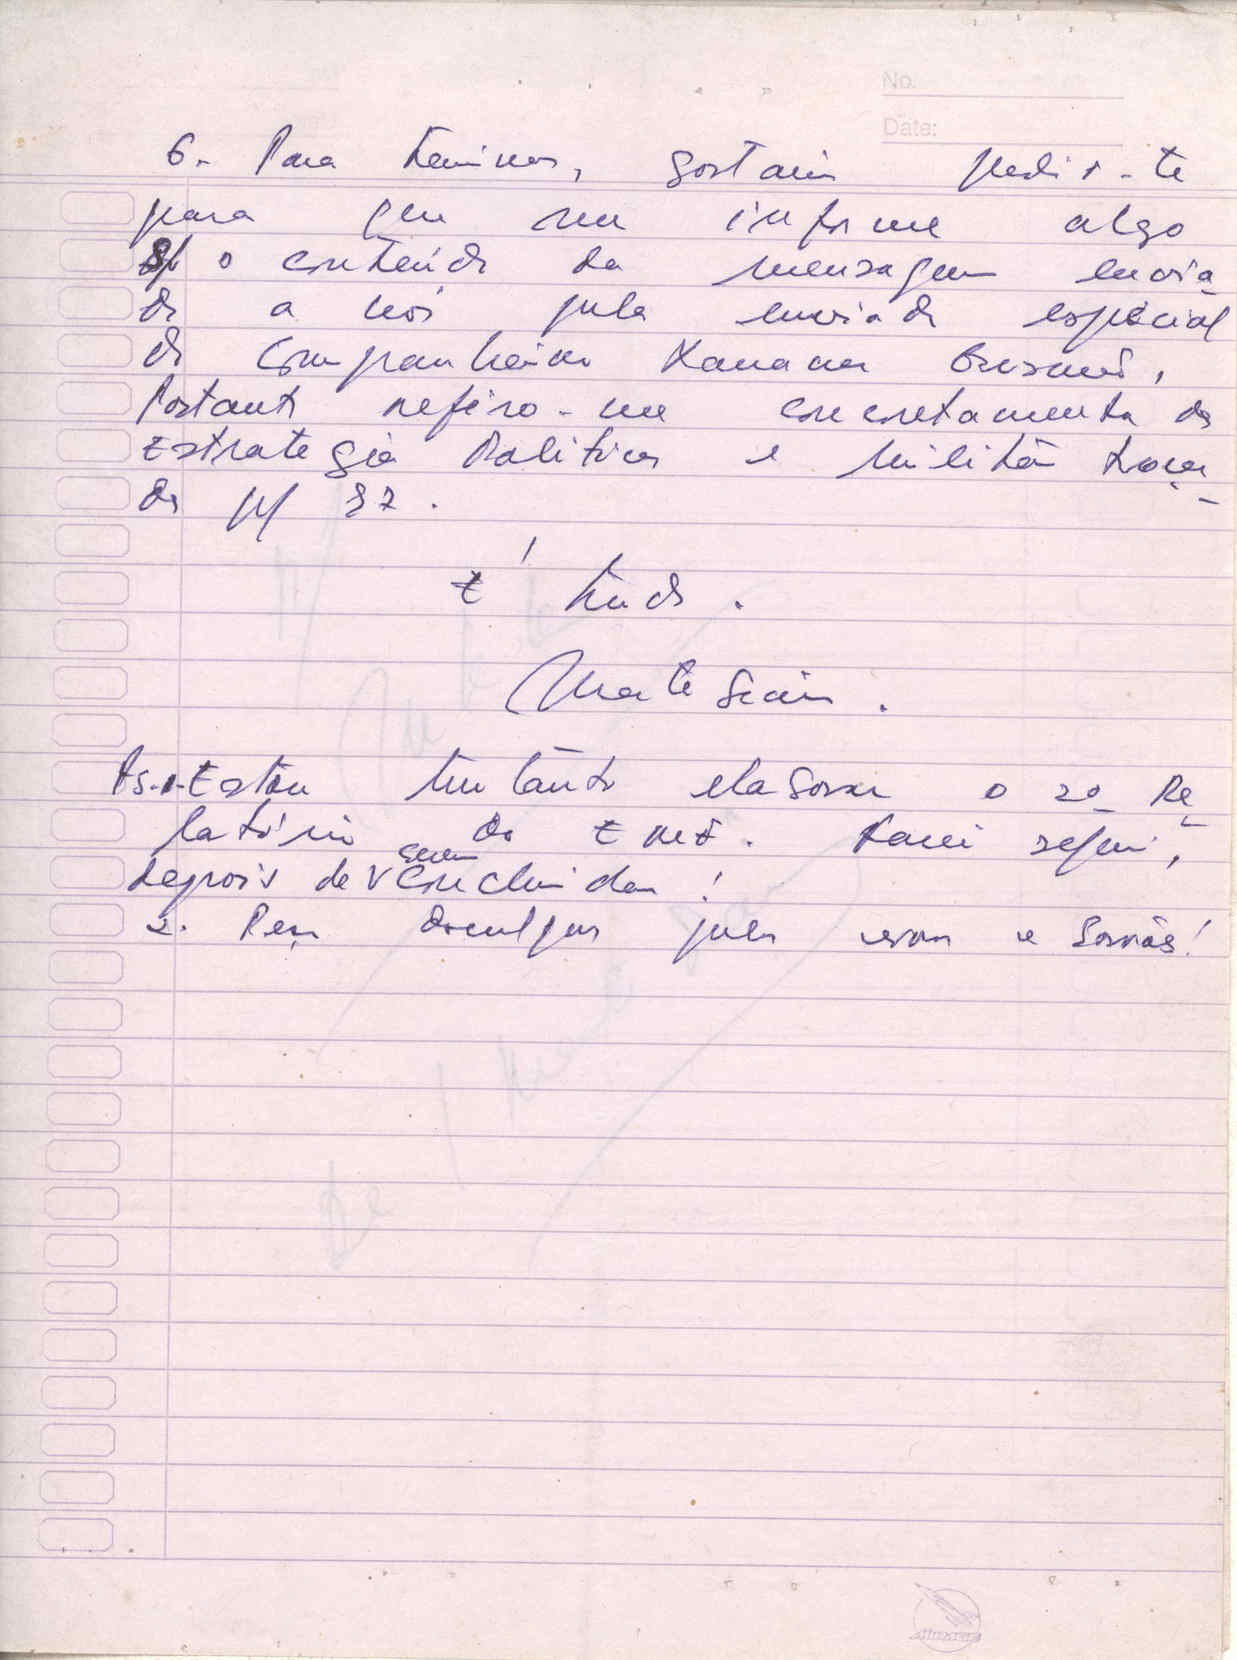 No.
Date:
6. Para terminar, gostaria pedir-te
para que me informe algo
s/ o conteúdo da mensagem envia
da a nós pela enviada especial
do Companheiro Xanana Gusmão,
Portanto refiro-me concretamente da
Estratégia Politica e Militar traça
da p/ 87.
É tudo.
Mate
Ps.1. Estou tentando elaborar o 2º Re
latório da . Farei seguir,
depois de serem concluidas!
2. Peço desculpas pelos erros e borrões!